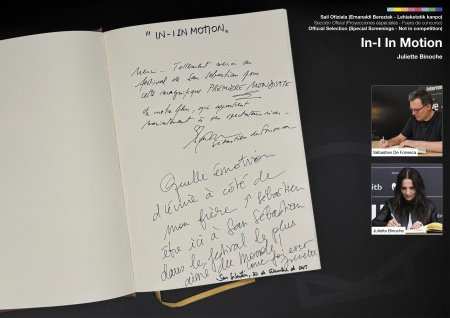 "IN-I IN MOTION"
Merci... Tellement merci au
festival de San Sebastian pour
cette magnifique PREMIÈRE MONDIALE
de notre film, qui appartient
maintenant à ses spectateurs
Sébastien de Fonseca
Quelle émotion
d'écrire à côté de
mon frère Sébastien
être ici à San Sébastian
dans le festival le plus
aimé du monde!
love for ever
Juliette
San Sebastián, 20 de
Sail Ofiziala (Emanaldi Bereziak - Lehiaketatik kanpo)
Sección Oficial (Proyecciones especiales - Fuera de concurso)
Official Selection (Special Screenings - Not in competition)
In-I In Motion
Juliette Binoche
Sébastien De Fonseca
itb
Juliette Binoche